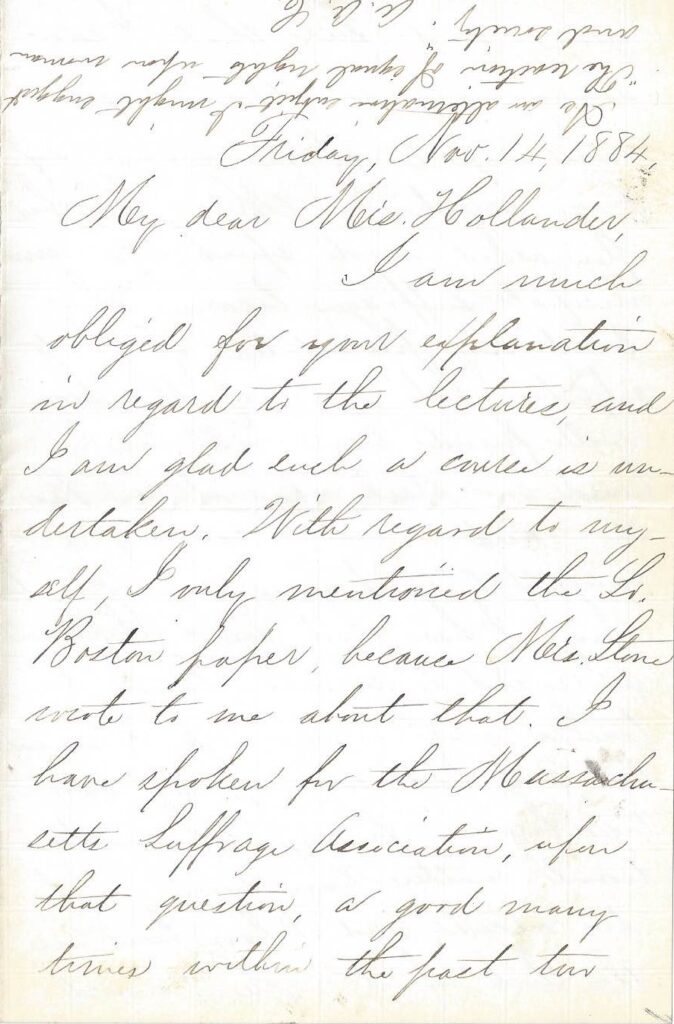 As an alternative subject I might suggest
"The reaction of equal rights upon woman
and society." A. A. C
Friday, Nov. 14, 1884,
My dear Mrs. Hollander,
I am much
obliged for your explanation
in regard to the lectures, and
I am glad such a course is un-
dertaken. With regard to my-
self, I only mentioned the So.
Boston paper, because Mrs. Stone
wrote to me about that. I
have spoken for the Massachu-
setts Suffrage Association, upon
that question, a good many
times within the past two